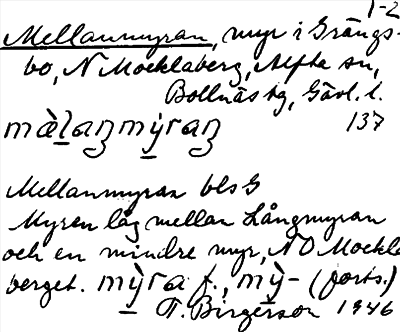 1-2
Mellanmyran, myr i Grängs-
bo, N Mocklaberg, Alfta sn,
Bollnäs tg, Gävl. l.
mæ̀laŋmỳraŋ 137
Mellanmyran bls G
Myren låg mellan Långmyran
och en mindre myr, NO Mockla
berget. mỳra f., mỳ- (forts.)
T. Birgerson 1946